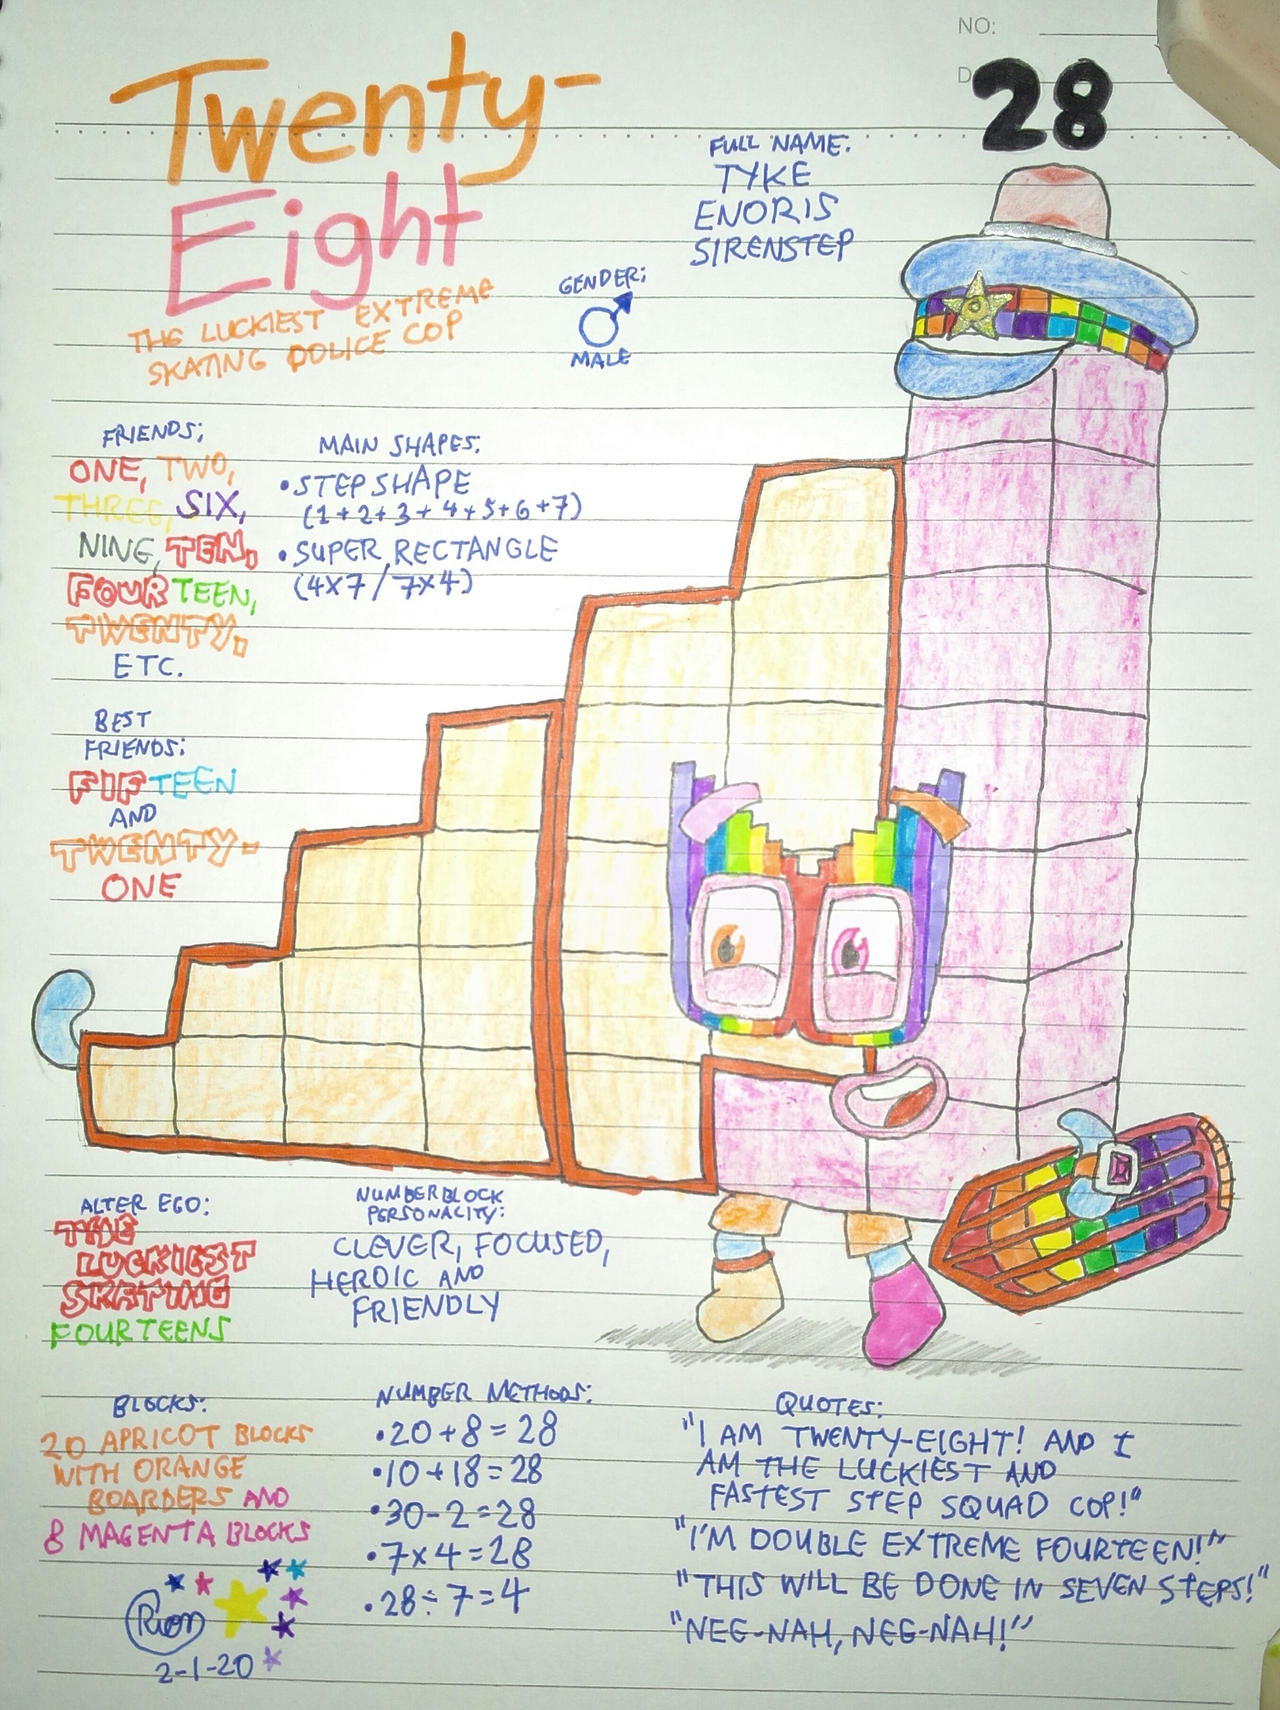 NO:
D
28
Twenty-
Eight
THE LUCKIEST EXTREME
SKATING POLICE COP
FULL NAME:
TYKE
ENORIS
SIRENSTEP
GENDER:
MALE
FRIENDS:
ONE, TWO,
THREE, SIX,
NINE, TEN,
FOURTEEN,
TWENTY,
ETC.
MAIN SHAPES:
•STEP SHAPE
(1+2+3+4+5+6+7)
•SUPER RECTANGLE
(4x7/7x4)
BEST
FRIENDS:
FIFTEEN
AND
TWENTY-
ONE
ALTER EGO:
THE
LUCKIEST
SKATING
FOURTEENS
NUMBERBLOCK
PERSONALITY:
CLEVER, FOCUSED,
HEROIC AND
FRIENDLY
BLOCKS:
20 APRICOT BLOCKS
WITH ORANGE
BOARDERS AND
8 MAGENTA BLOCKS
NUMBER METHODS:
•20+8=28
•10+18=28
•30-2=28
•7x4=28
•28÷7=4
QUOTES:
"I AM TWENTY-EIGHT! AND I
AM THE LUCKIEST AND
FASTEST STEP SQUAD COP!"
"I'M DOUBLE EXTREME FOURTEEN!"
"THIS WILL BE DONE IN SEVEN STEPS!"
"NEE-NAH, NEE-NAH!"
Rion
2-1-20